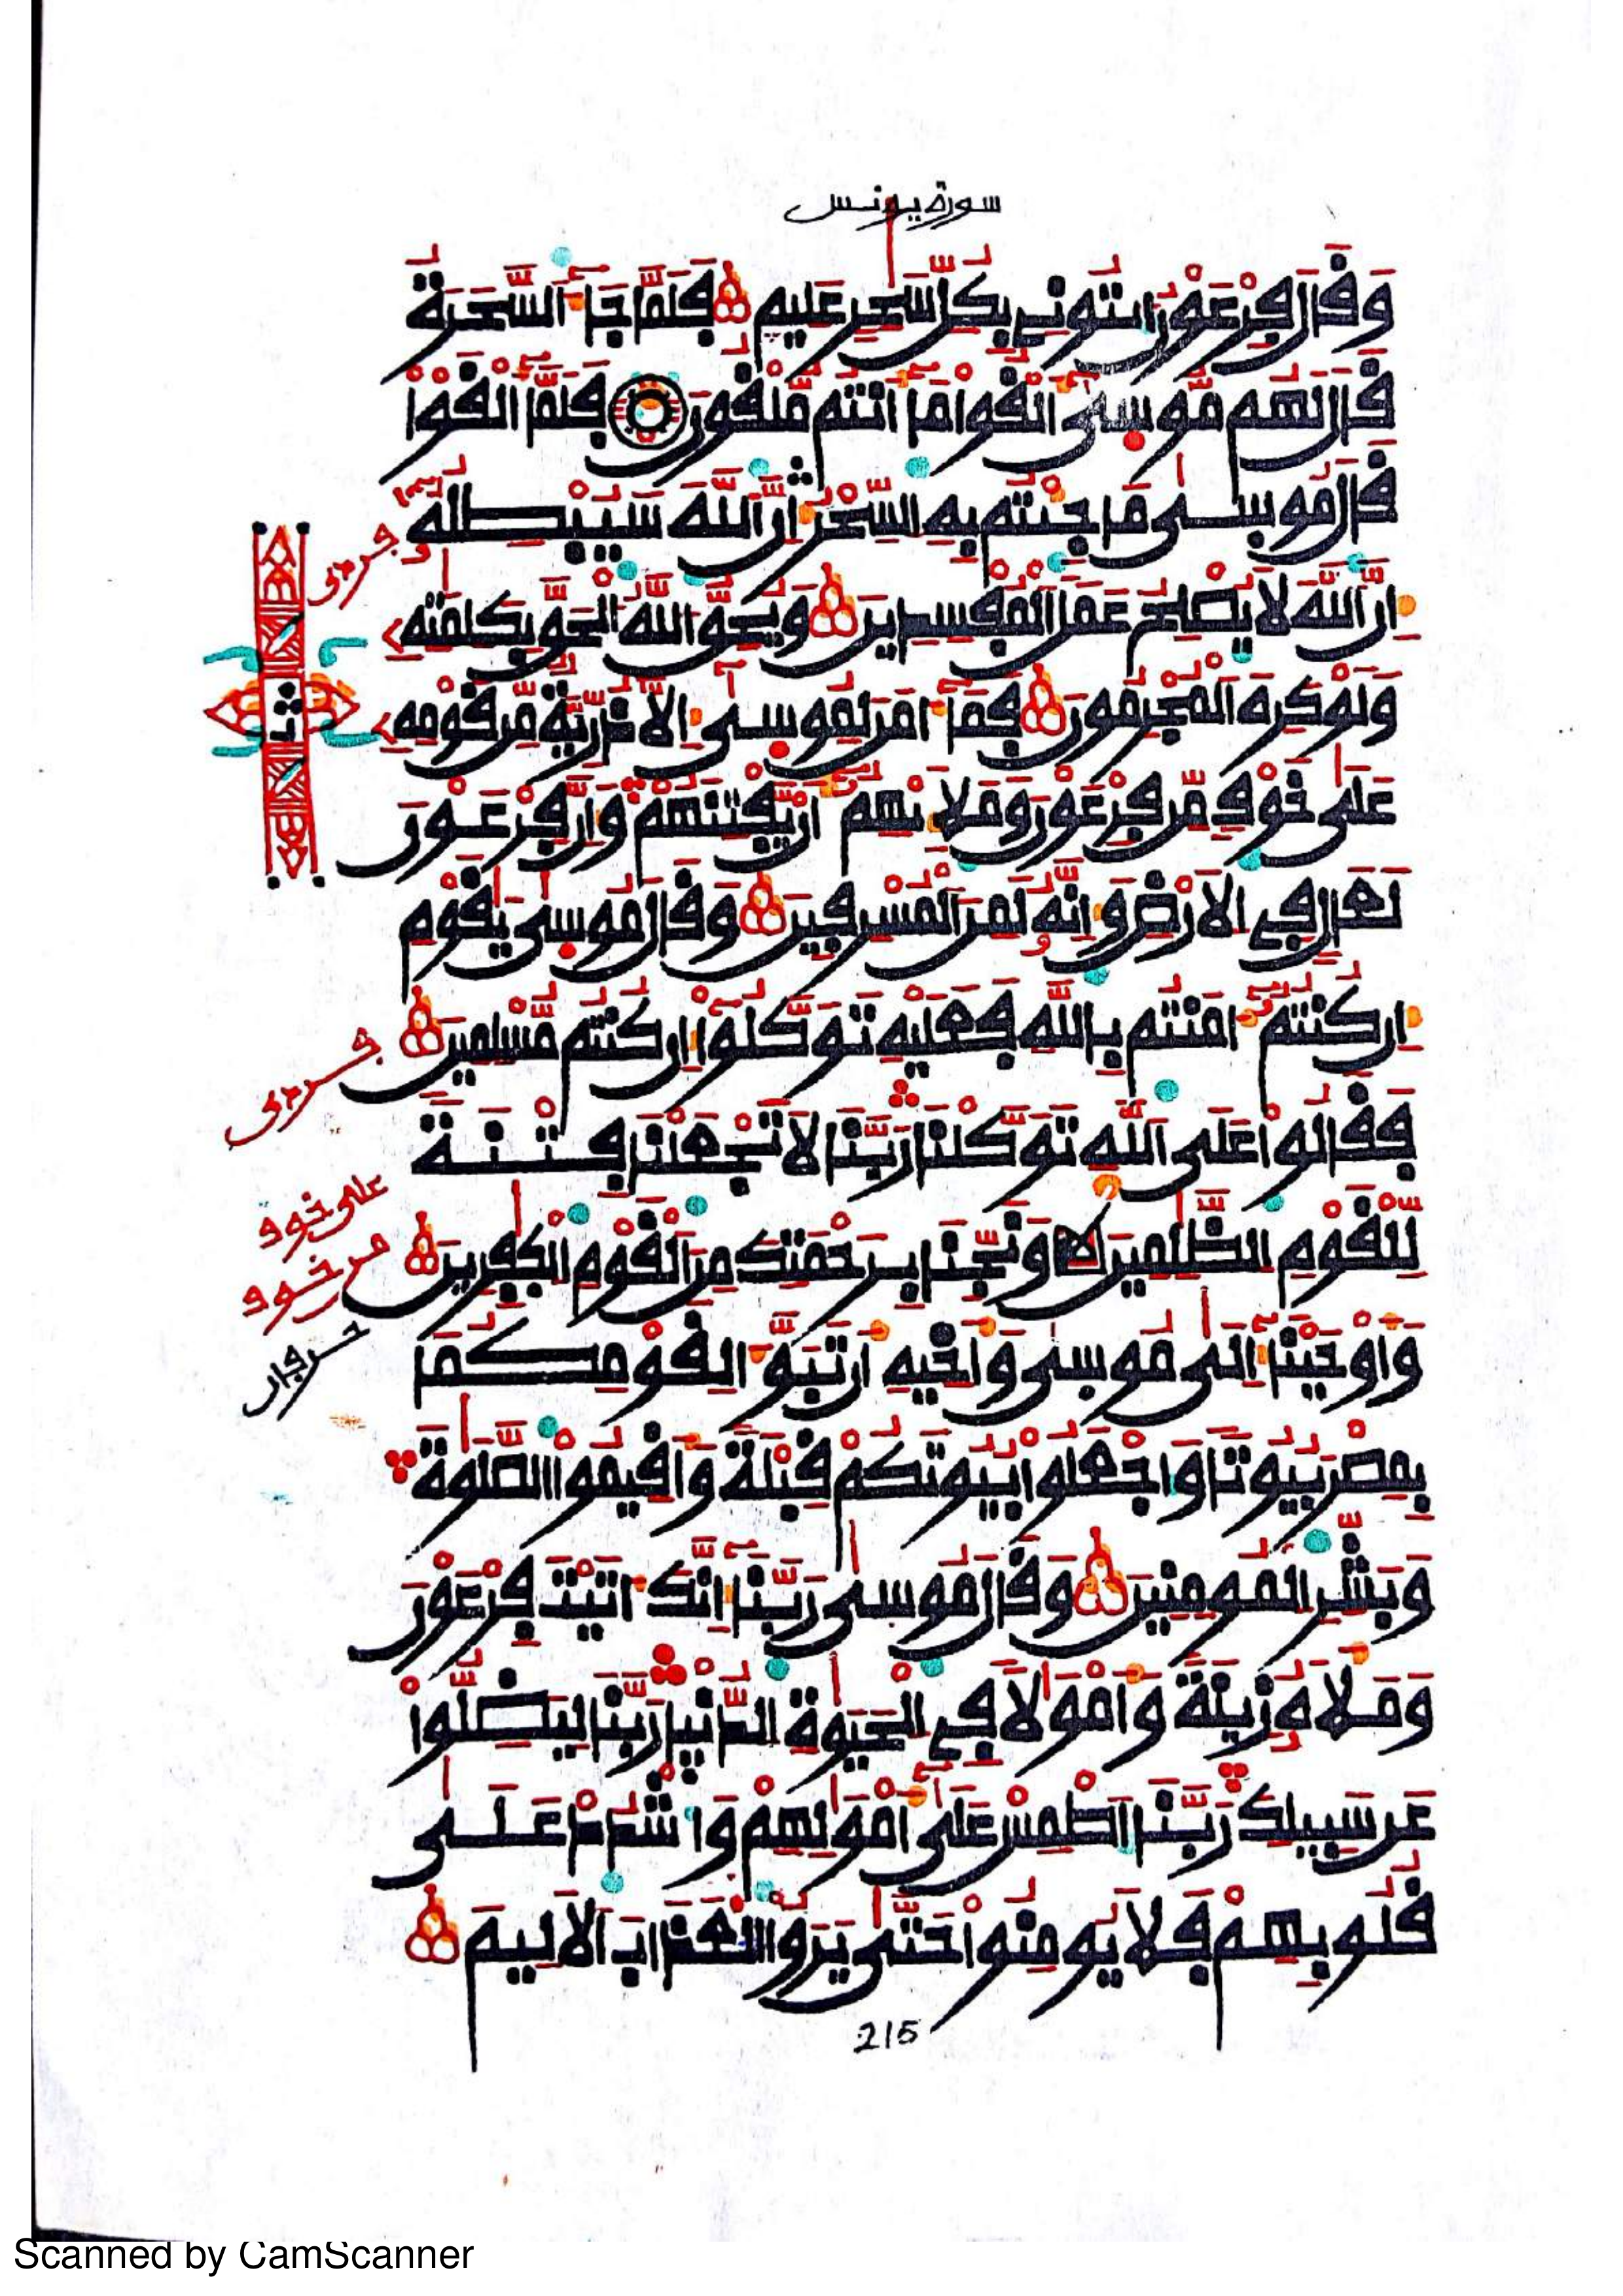 سورة يونس
وَقَالَ فِرْعَوْنُ ايتُونِي بِكُلِّ سَٰحِرٍ عَلِيمٍ فَلَمَّا جَآءَ اَ۬لسَّحَرَةُ
قَالَ لَهُم مُّوسَىٰٓ أَلْقُوا مَآ أَنتُم مُّلْقُونَ فَلَمَّآ أَلْقَوْا
قَالَ مُوسَىٰ مَا جِئْتُم بِهِ السِّحْرُ إِنَّ اَ۬للَّهَ سَيُبْطِلُهُۥٓ
إِنَّ اَ۬للَّهَ لَا يُصْلِحُ عَمَلَ اَ۬لْمُفْسِدِينَ وَيُحِقُّ اُ۬للَّهُ اُ۬لْحَقَّ بِكَلِمَٰتِهِۦ
وَلَوْ كَرِهَ اَ۬لْمُجْرِمُونَ فَمَآ ءَامَنَ لِمُوسَىٰٓ إِلَّا ذُرِّيَّةٌ مِّن قَوْمِهِۦ
عَلَىٰ خَوْفٍ مِّن فِرْعَوْنَ وَمَلَإِيْهِمُۥٓ أَنْ يَّفْتِنَهُمْ وَإِنَّ فِرْعَوْنَ
لَعَالٍ فِي اِ۬لَارْضِ وَإِنَّهُۥ لَمِنَ اَ۬لْمُسْرِفِينَ وَقَالَ مُوسَىٰ يَٰقَوْمِ
إِن كُنتُمُۥٓ ءَامَنتُم بِاللَّهِ فَعَلَيْهِ تَوَكَّلُوٓا إِن كُنتُم مُّسْلِمِينَ
فَقَالُوا عَلَى اَ۬للَّهِ تَوَكَّلْنَا رَبَّنَا لَا تَجْعَلْنَا فِتْنَةً
لِّلْقَوْمِ اِ۬لظَّٰلِمِينَ وَنَجِّنَا بِرَحْمَتِكَ مِنَ اَ۬لْقَوْمِ اِ۬لْكَٰفِرِينَ
وَأَوْحَيْنَآ إِلَىٰ مُوسَىٰ وَأَخِيهِ أَن تَبَوَّءَا لِقَوْمِكُمَا
بِمِصْرَ بُيُوتًا وَاجْعَلُوا بُيُوتَكُمْ قِبْلَةً وَأَقِيمُوا اُ۬لصَّلَوٰةَ
وَبَشِّرِ اِ۬لْمُومِنِينَ وَقَالَ مُوسَىٰ رَبَّنَآ إِنَّكَ ءَاتَيْتَ فِرْعَوْنَ
وَمَلَأَهُۥ زِينَةً وَأَمْوَٰلًا فِي اِ۬لْحَيَوٰةِ اِ۬لدُّنْيَا رَبَّنَا لِيَضِلُّوا
عَن سَبِيلِكَ رَبَّنَا اَ۪طْمِسْ عَلَىٰٓ أَمْوَٰلِهِمْ وَاشْدُدْ عَلَىٰ
قُلُوبِهِمْ فَلَا يُومِنُوا حَتَّىٰ يَرَوُا اُ۬لْعَذَابَ اَ۬لَالِيمَ
ثمن
على خوف
من خوف
215
Scanned by CamScanner